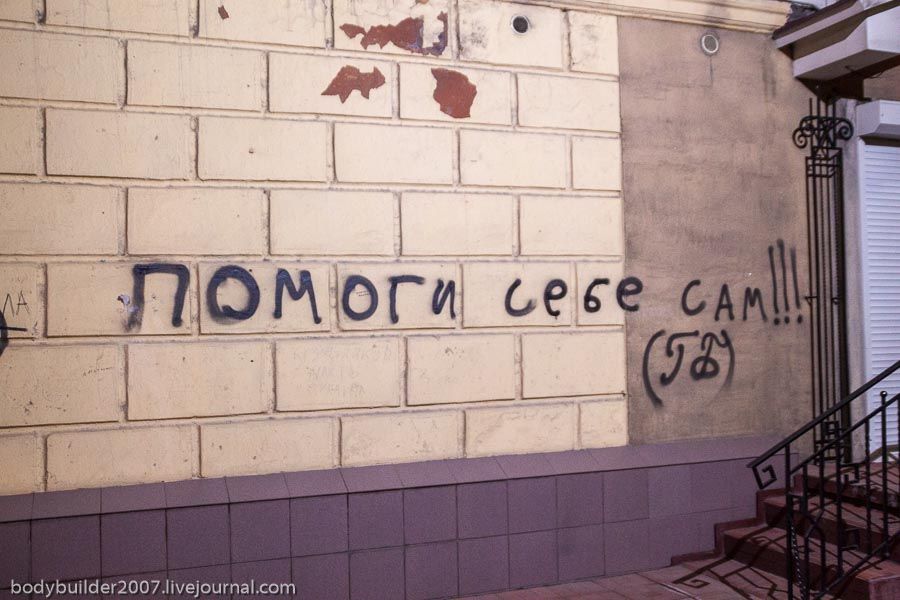 помоги себе сам!!!
(ГД)
bodybuilder2007.livejournal.com